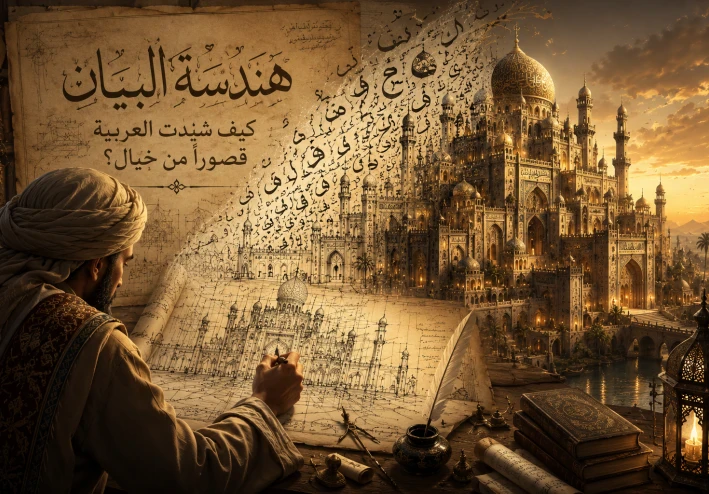 هَنْدَسَةُ البَيَانِ
كيف شيّدت العربية
قصوراً من خيال؟